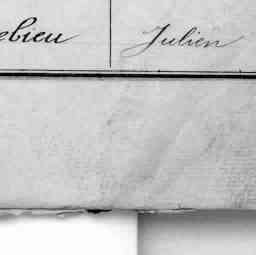 ebieu Julien